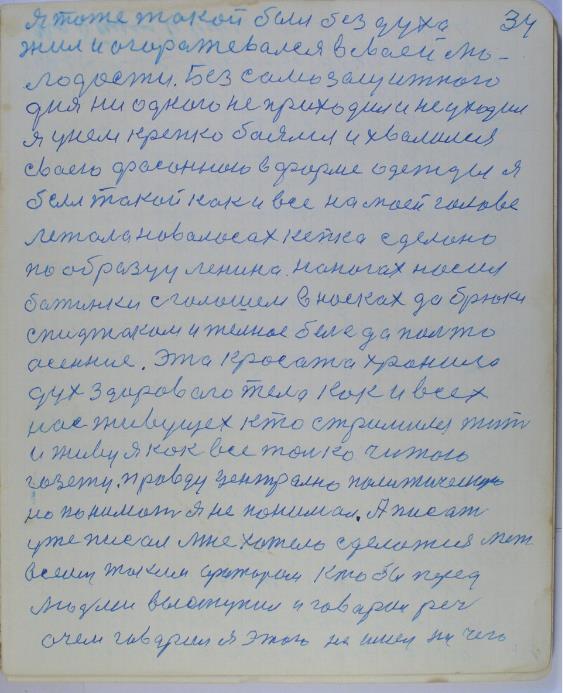 34
я тоже такой был без духа
жил и огораживался в своей мо-
лодости. Без самозащитного
дня ни одного не приходил и не уходил
я у нем крепко боялся и хвалился
своего фасонною в форме одежды я
был такой как и все на моей голове
лежала на волосах кепка сделано
по образцу ленина. на ногах носил
ботинки с голошем в носках да брюки
с пиджаком и тёлное беле да полто
осенние. Эта красата хронила
дух здорового тела как и всех
нас живущех кто стримился жит
и живу я как все толко читаю
газету. правду централно политическую
но понимат я не понимал. А писат
уже писал мне хотело сделатся меж
всеми таким оратором кто бы перед
людми выступил и говарил реч
очем говарил я этого не имел ни чего